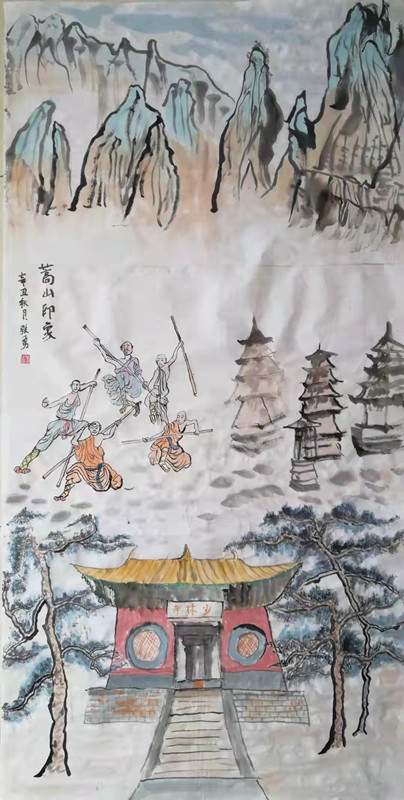 嵩山印象
辛丑秋月
少林寺